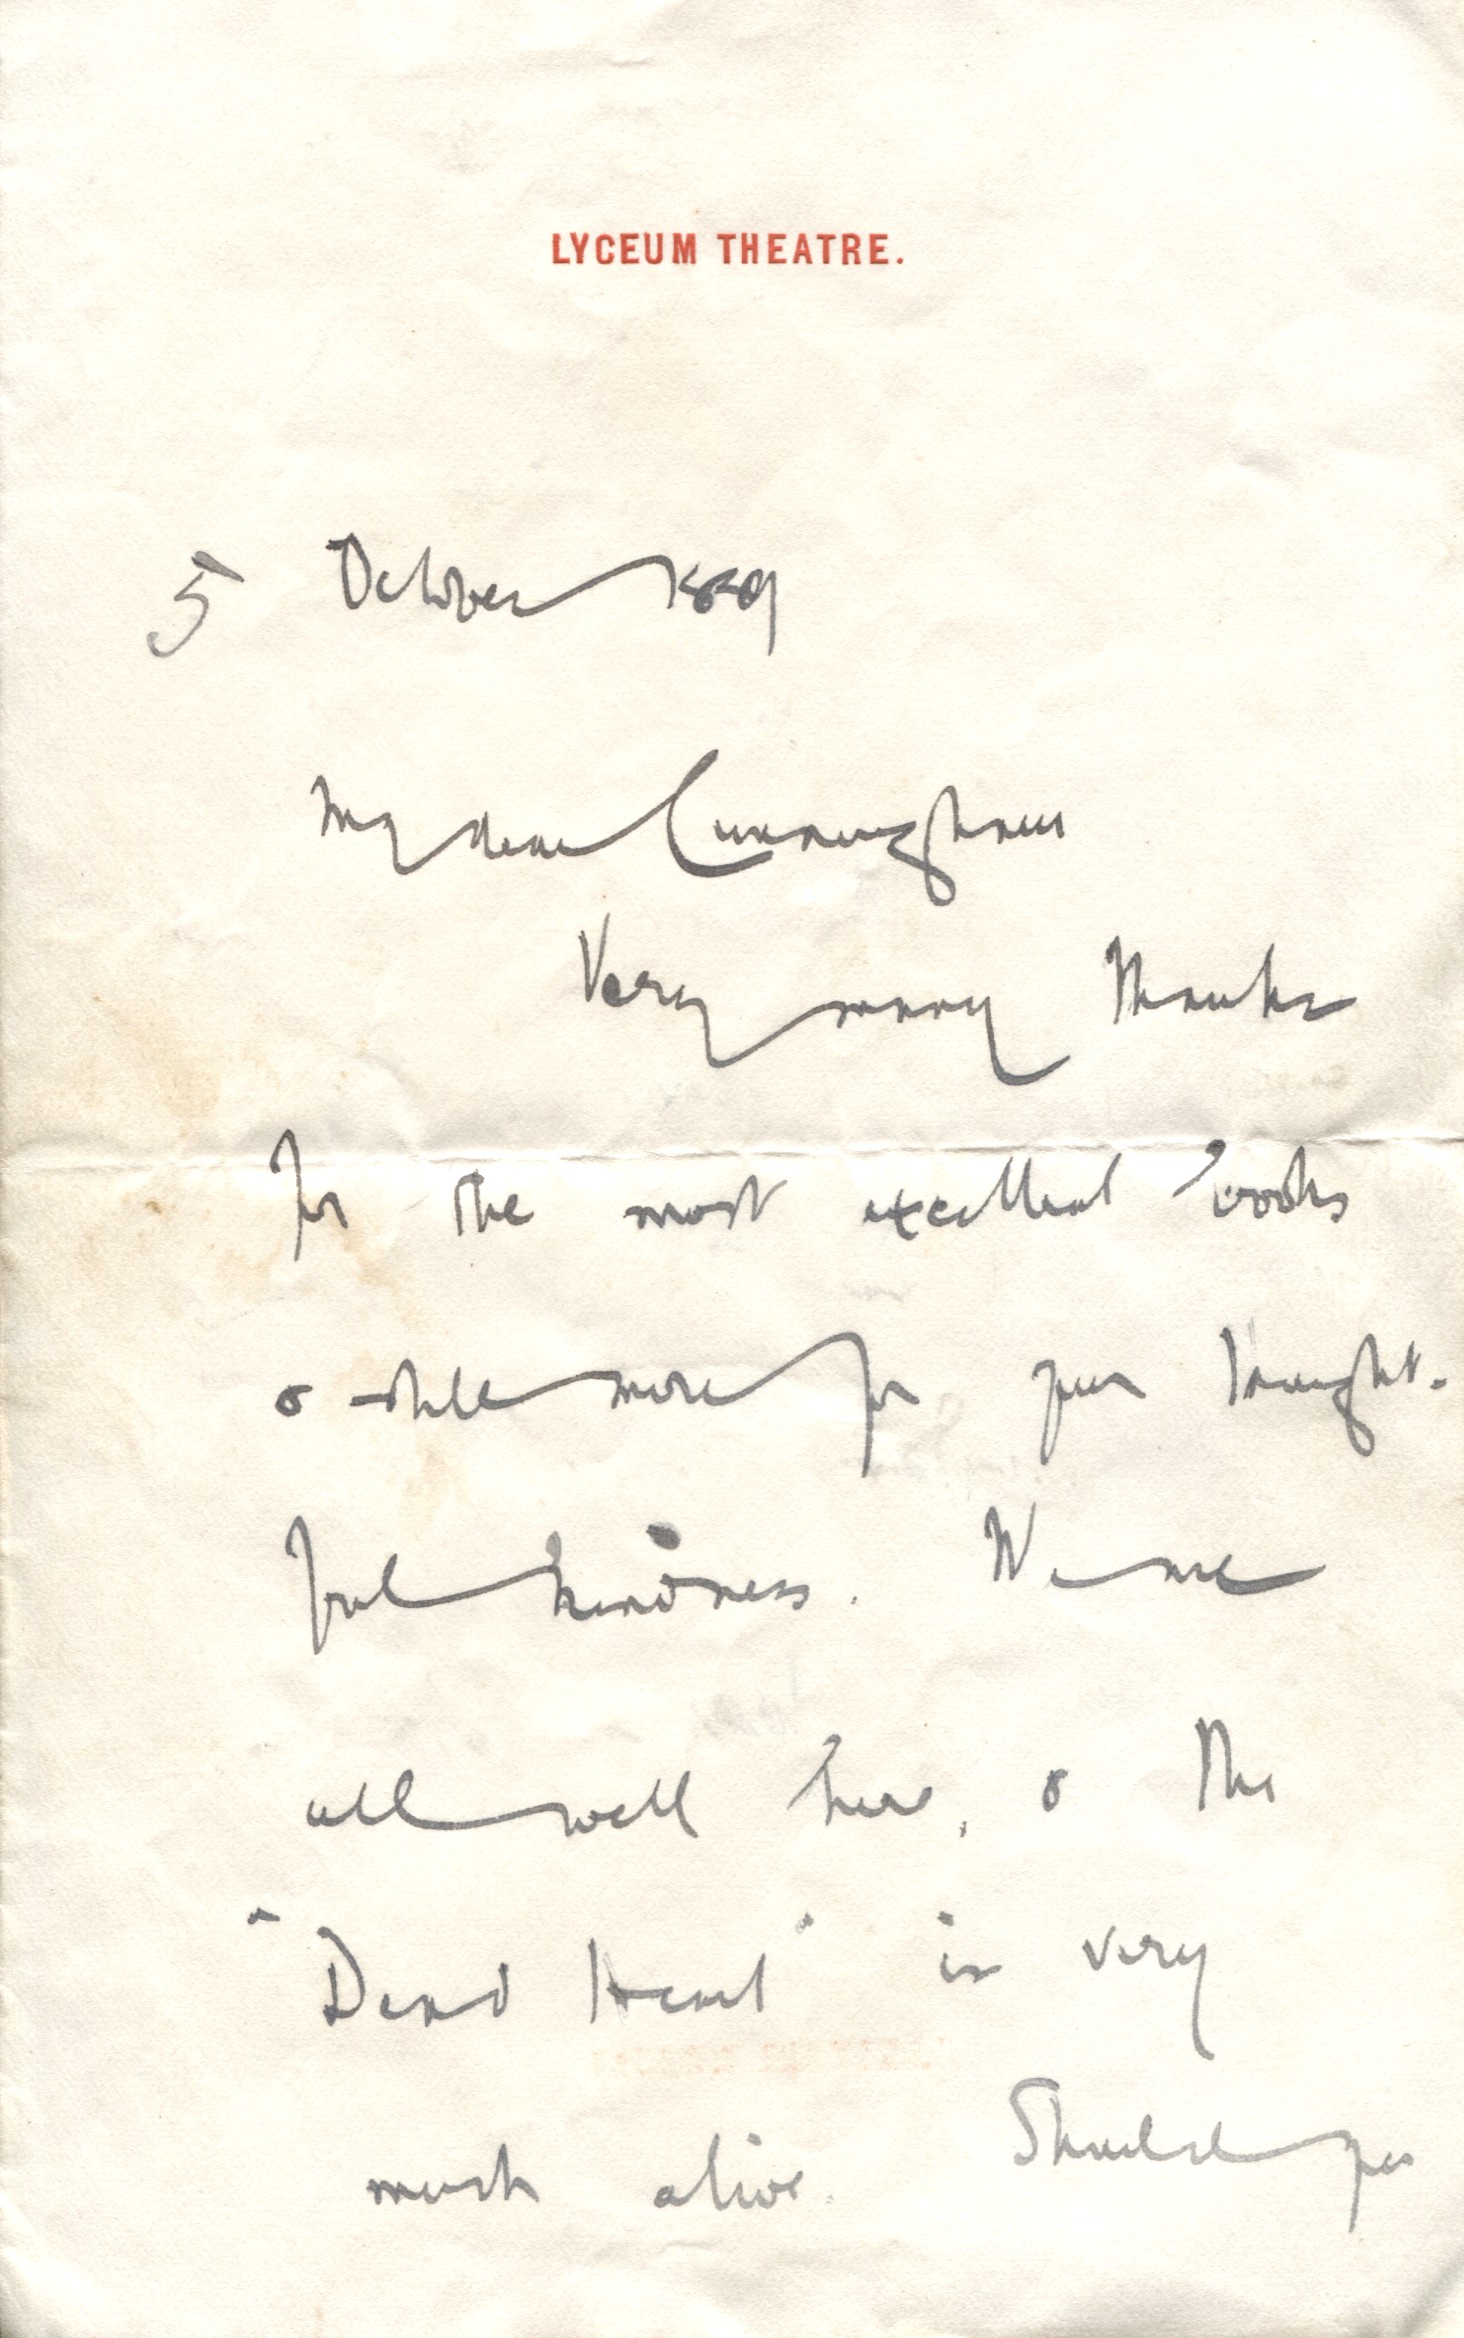 LYCEUM THEATRE.
5 October 1889
My dear Cunningham
Very many thanks
for the most excellent books
& still more for your thought-
ful kindness. We are
all well here, & the
"Dead Heart" is very
much alive. Should you